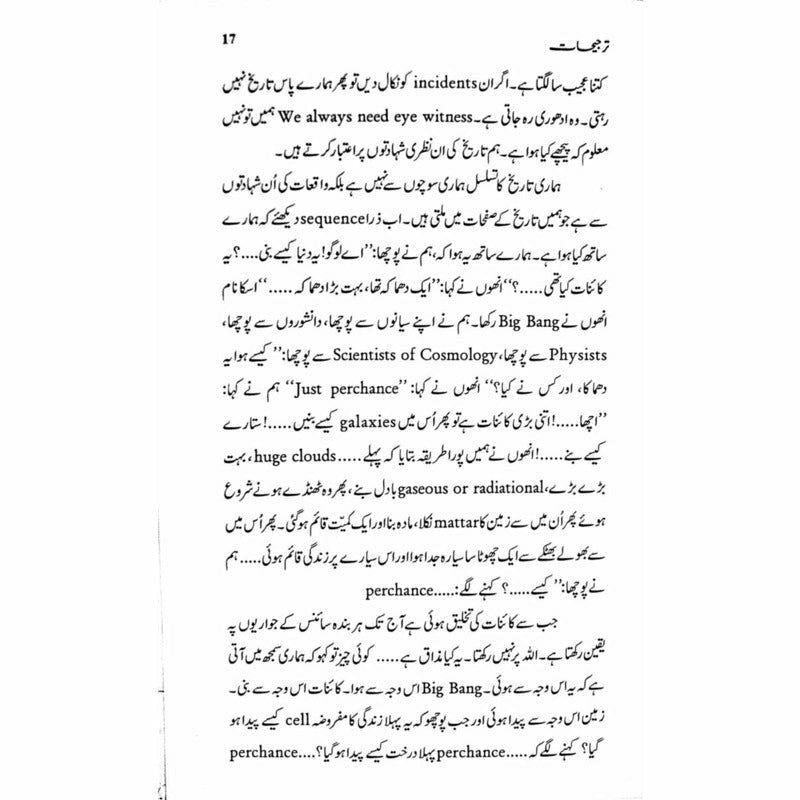 ترجیحات 17
کتنا عجیب سا لگتا ہے۔ اگر ان incidents کو نکال دیں تو پھر ہمارے پاس تاریخ نہیں
رہتی۔ وہ ادھوری رہ جاتی ہے۔ We always need eye witness ہمیں تو نہیں
معلوم کہ پیچھے کیا ہوا ہے۔ ہم تاریخ کی ان نظری شہادتوں پر اعتبار کرتے ہیں۔
ہماری تاریخ کا تسلسل ہماری سوچوں سے نہیں ہے بلکہ واقعات کی اُن شہادتوں
سے ہے جو ہمیں تاریخ کے صفحات میں ملتی ہیں۔ اب ذرا sequence دیکھئے کہ ہمارے
ساتھ کیا ہوا ہے۔ ہمارے ساتھ یہ ہوا کہ، ہم نے پوچھا: ’’اے لوگو! یہ دنیا کیسے بنی....؟ یہ
کائنات کیا تھی.....؟‘‘ انھوں نے کہا: ’’ایک دھماکہ تھا، بہت بڑا دھماکہ.....‘‘ اسکا نام
انھوں نے Big Bang رکھا۔ ہم نے اپنے سیانوں سے پوچھا، دانشوروں سے پوچھا،
Physists سے پوچھا، Scientists of Cosmology سے پوچھا: ’’کیسے ہوا یہ
دھماکا، اور کس نے کیا؟‘‘ انھوں نے کہا: ’’Just perchance‘‘ ہم نے کہا:
’’اچھا.....! اتنی بڑی کائنات ہے تو پھر اُس میں galaxies کیسے بنیں.....! ستارے
کیسے بنے.....! انھوں نے ہمیں پورا طریقہ بتایا کہ پہلے..... huge clouds، بہت
بڑے بڑے، gaseous or radiational بادل بنے، پھر وہ ٹھنڈے ہونے شروع
ہوئے پھر اُن میں سے زمین کا mattar نکلا، مادہ بنا اور ایک کمیّت قائم ہو گئی۔ پھر اُس میں
سے بھولے بھٹکے سے ایک چھوٹا سا سیارہ جدا ہوا اور اس سیارے پر زندگی قائم ہوئی..... ہم
نے پوچھا: ’’کیسے.....؟ کہنے لگے: .....perchance
جب سے کائنات کی تخلیق ہوئی ہے آج تک ہر بندہ سائنس کے جواریوں پہ
یقین رکھتا ہے۔ اللہ پر نہیں رکھتا۔ یہ کیا مذاق ہے..... کوئی چیز تو کہو کہ ہماری سمجھ میں آتی
ہے کہ یہ اس وجہ سے ہوئی۔ Big Bang اس وجہ سے ہوا۔ کائنات اس وجہ سے بنی۔
زمین اس وجہ سے پیدا ہوئی اور جب پوچھو کہ یہ پہلا زندگی کا مفروضہ cell کیسے پیدا ہو
گیا؟ کہنے لگے کہ .....perchance پہلا درخت کیسے پیدا ہو گیا؟ ....perchance